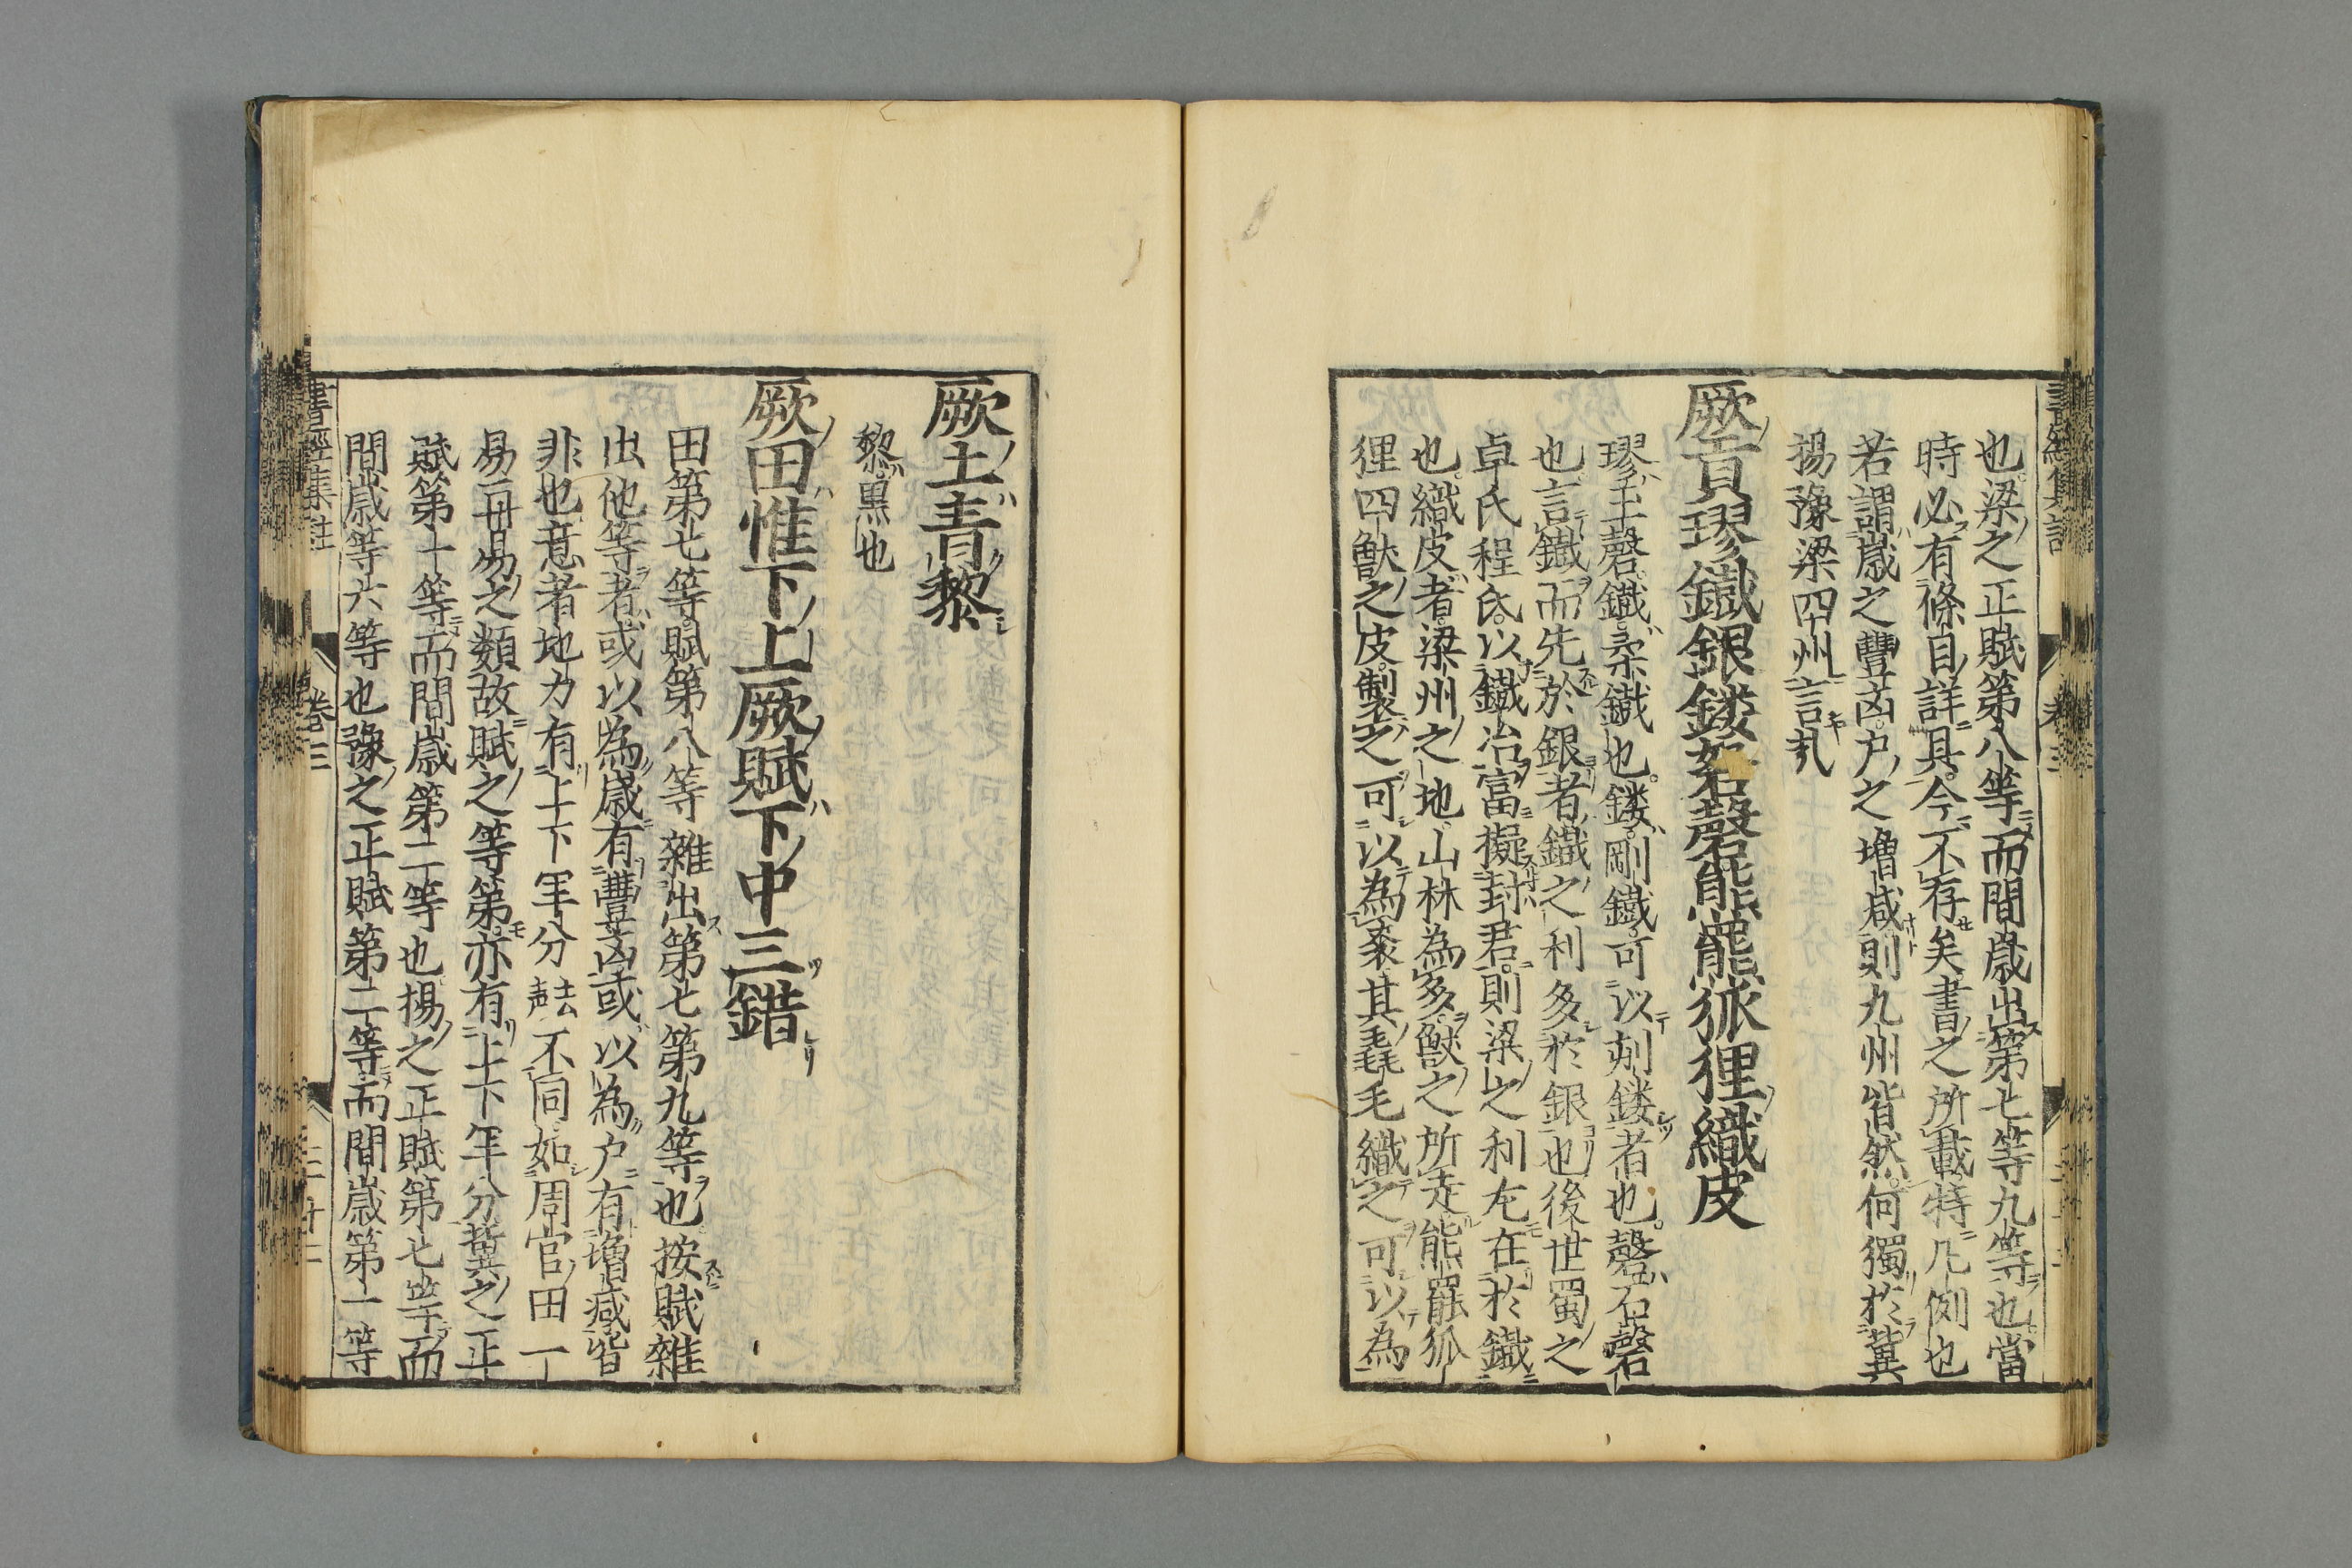 書經集註 卷三
也梁之正賦第八等而間歳出第七等九等也當
時必有條目詳具今不存矣書之所載特凡例也
若謂歳之豐凶户之増减則九州皆然何獨於冀
揚豫梁四州言㢤
厥貢璆鐵銀鏤砮磬熊羆狐狸織皮
璆玉磬鐵柔鐵也鏤剛鐵可以刻鏤者也磬石磬
也言鐵而先於銀者鐵之利多於銀也後世蜀之
卓氏程氏以鐵冶富擬封君則梁之利尤在於鐵
也織皮者梁州之地山林為多獸之所走熊羆狐
狸四獸之皮製之可以為裘其毳毛織之可以為
厥土青黎
黎黒也
厥田惟下上厥賦下中三錯
田第七等賦第八等雜出第七第九等也按賦雜
出他等者或以為歳有豐凶或以為户有増减皆
非也意者地力有上下年分去声不同如周官田一
易再易之類故賦之等第亦有上下年分冀之正
賦第一等而間歳第二等也揚之正賦第七等而
間歳第六等也豫之正賦第二等而間歳第一等
書經集註 卷三 三十二